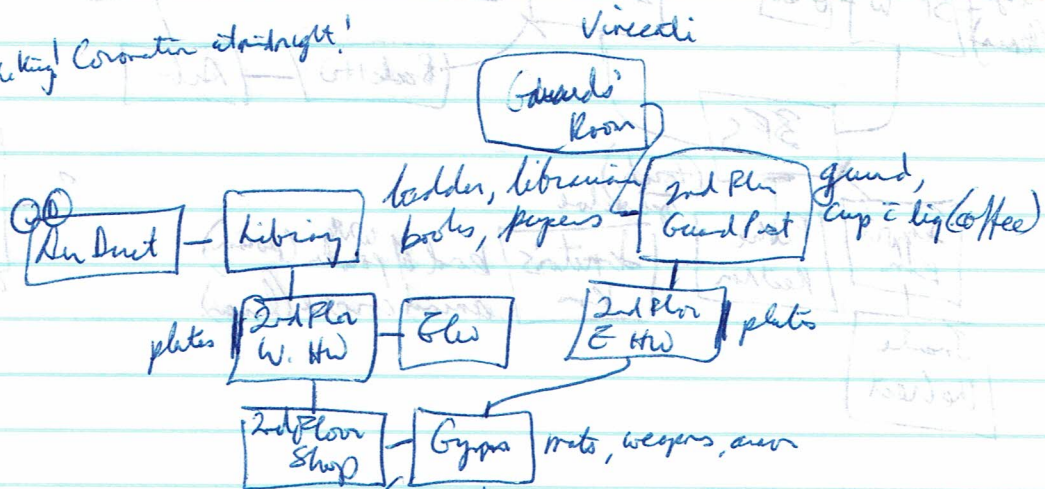 Coronation at midnight!
Guards'
Room
ladder, librarian
books, papers
2nd Flr
Guard Post
guard,
cup c̄ liq (coffee)
Air Duct
Library
plates
2nd Flor
W. HW
Elev
2nd Flor
E HW
plates
2nd Floor
Shop
mats, weapons,